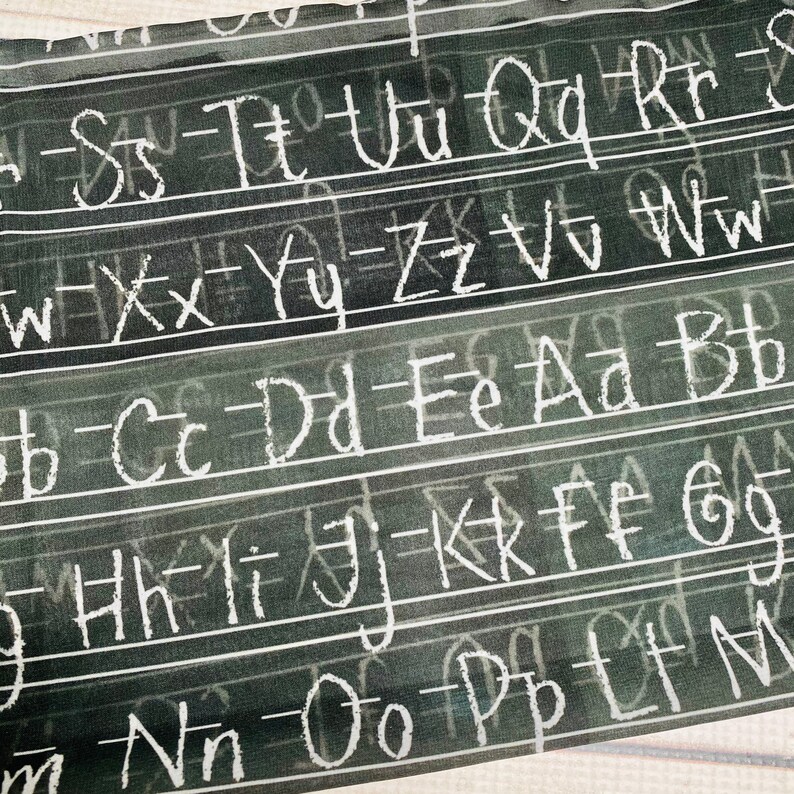 Ss Tt Uu Qq Rr S
w Xx Yy Zz Vv Ww
b Cc Dd Ee Aa Bb
g Hh Ii Jj Kk Ff Gg
m Nn Oo Pp Ll M